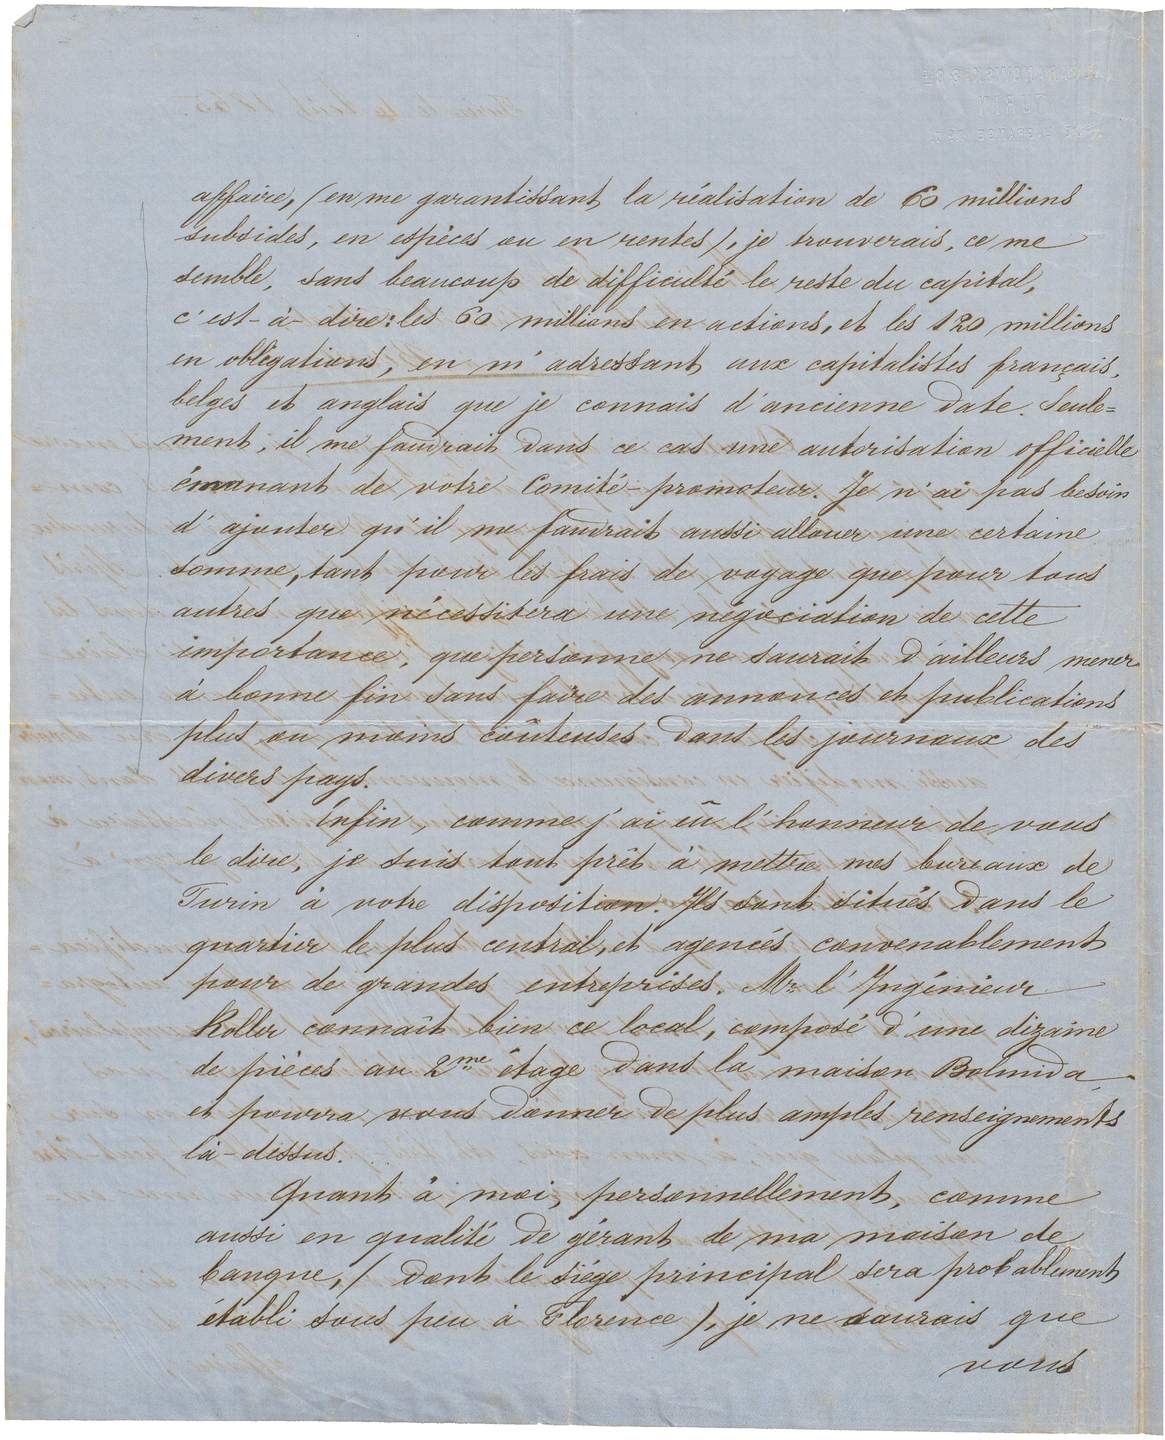 affaire, (en me garantissant la réalisation de 60 millions
subsides, en espèces ou en rentes), je trouverais, ce me
semble, sans beaucoup de difficulté le reste du capital,
c'est-à-dire: les 60 millions en actions, et les 120 millions
en obligations, en m'adressant aux capitalistes français,
belges et anglais que je connais d'ancienne date. Seule=
ment, il me faudrait dans ce cas une autorisation officielle
émanant de votre Comité-promoteur. Je n'ai pas besoin
d'ajouter qu'il me faudrait aussi allouer une certaine
somme, tant pour les frais de voyage que pour tous
autres que nécessitera une négociation de cette
importance, que personne ne saurait d'ailleurs mener
à bonne fin sans faire des annonces et publications
plus ou moins coûteuses dans les journaux des
divers pays.
Enfin, comme j'ai eû l'honneur de vous
le dire, je suis tout prêt à mettre mes bureaux de
Turin à votre disposition. Ils sont situés dans le
quartier le plus central, et agencés convenablement
pour de grandes entreprises. Mr l'Ingénieur
Koller connaît bien ce local, composé d'une dizaine
de pièces au 2me étage dans la maison Bolmida,
et pourra vous donner de plus amples renseignements
là-dessus.
Quant à moi, personnellement, comme
aussi en qualité de gérant de ma maison de
banque, (dont le siége principal sera probablement
établi sous peu à Florence), je ne saurais que
vous